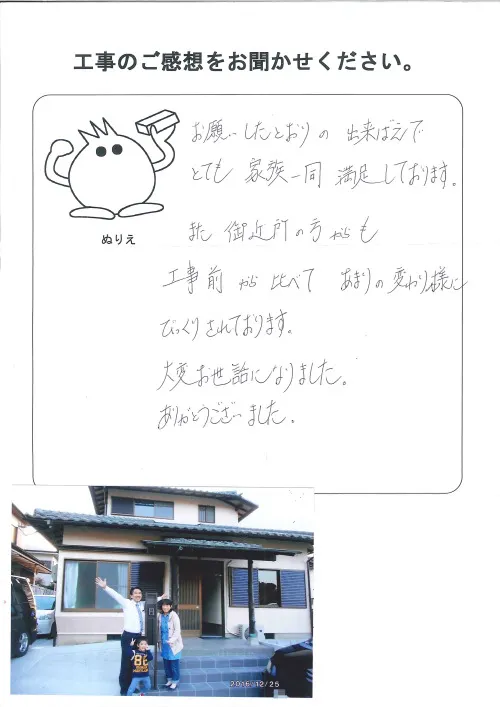 工事のご感想をお聞かせください。
お願いしたとおりの 出来ばえで
とても 家族一同 満足しております。
ぬりえ
また 御近所の方からも
工事前から比べて あまりの変わり様に
びっくりされております。
大変お世話になりました。
ありがとうございました。
2016/12/25